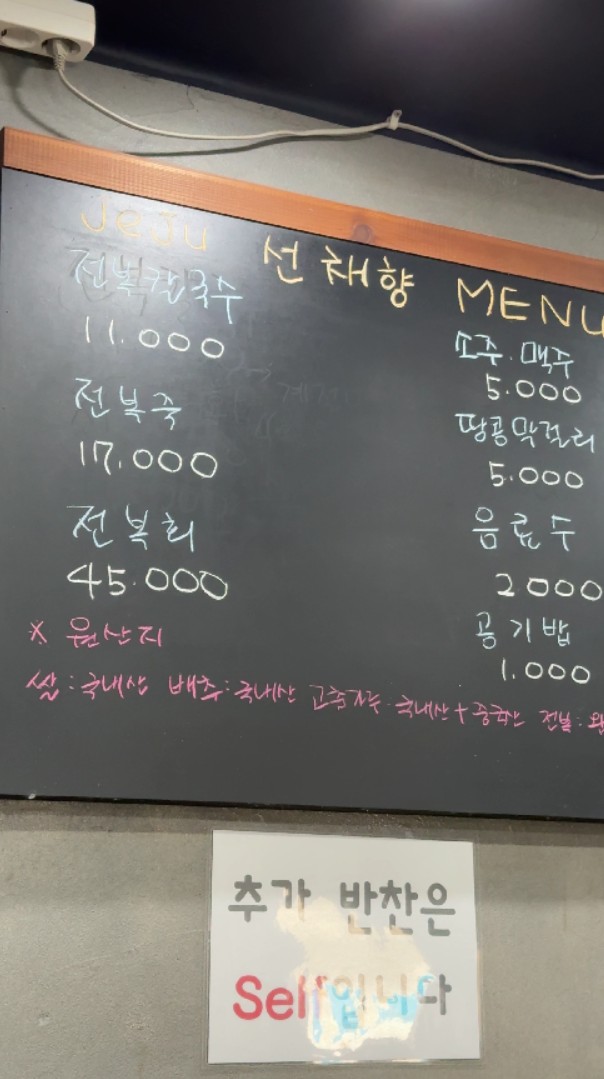 Jeju 선채향 MENU
전복칼국수
11.000
전복죽
17.000
전복회
45.000
소주.맥주
5.000
땅콩막걸리
5.000
음료수
2000
공기밥
1.000
※ 원산지
쌀:국내산 배추:국내산 고추가루:국내산+중국산 전복:완
추가 반찬은
Self입니다